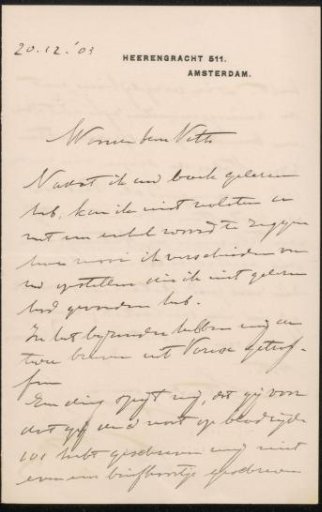 20.12.'03
HEERENGRACHT 511.
AMSTERDAM.
Waarde heer Veth
Nadat ik uw boek gelezen
heb, kan ik niet nalaten u
met een enkel woord te zeggen
hoe mooi ik verscheiden van
uw opstellen die ik niet gelezen
had gevonden heb.
In het bijzonder hebben mij uw
twee brieven uit Venise getrof-
fen
Een ding spijt mij, dat gij voor
dat gij de noot op bladzijde
101 hebt geschreven mij niet
even een briefkaartje geschreven